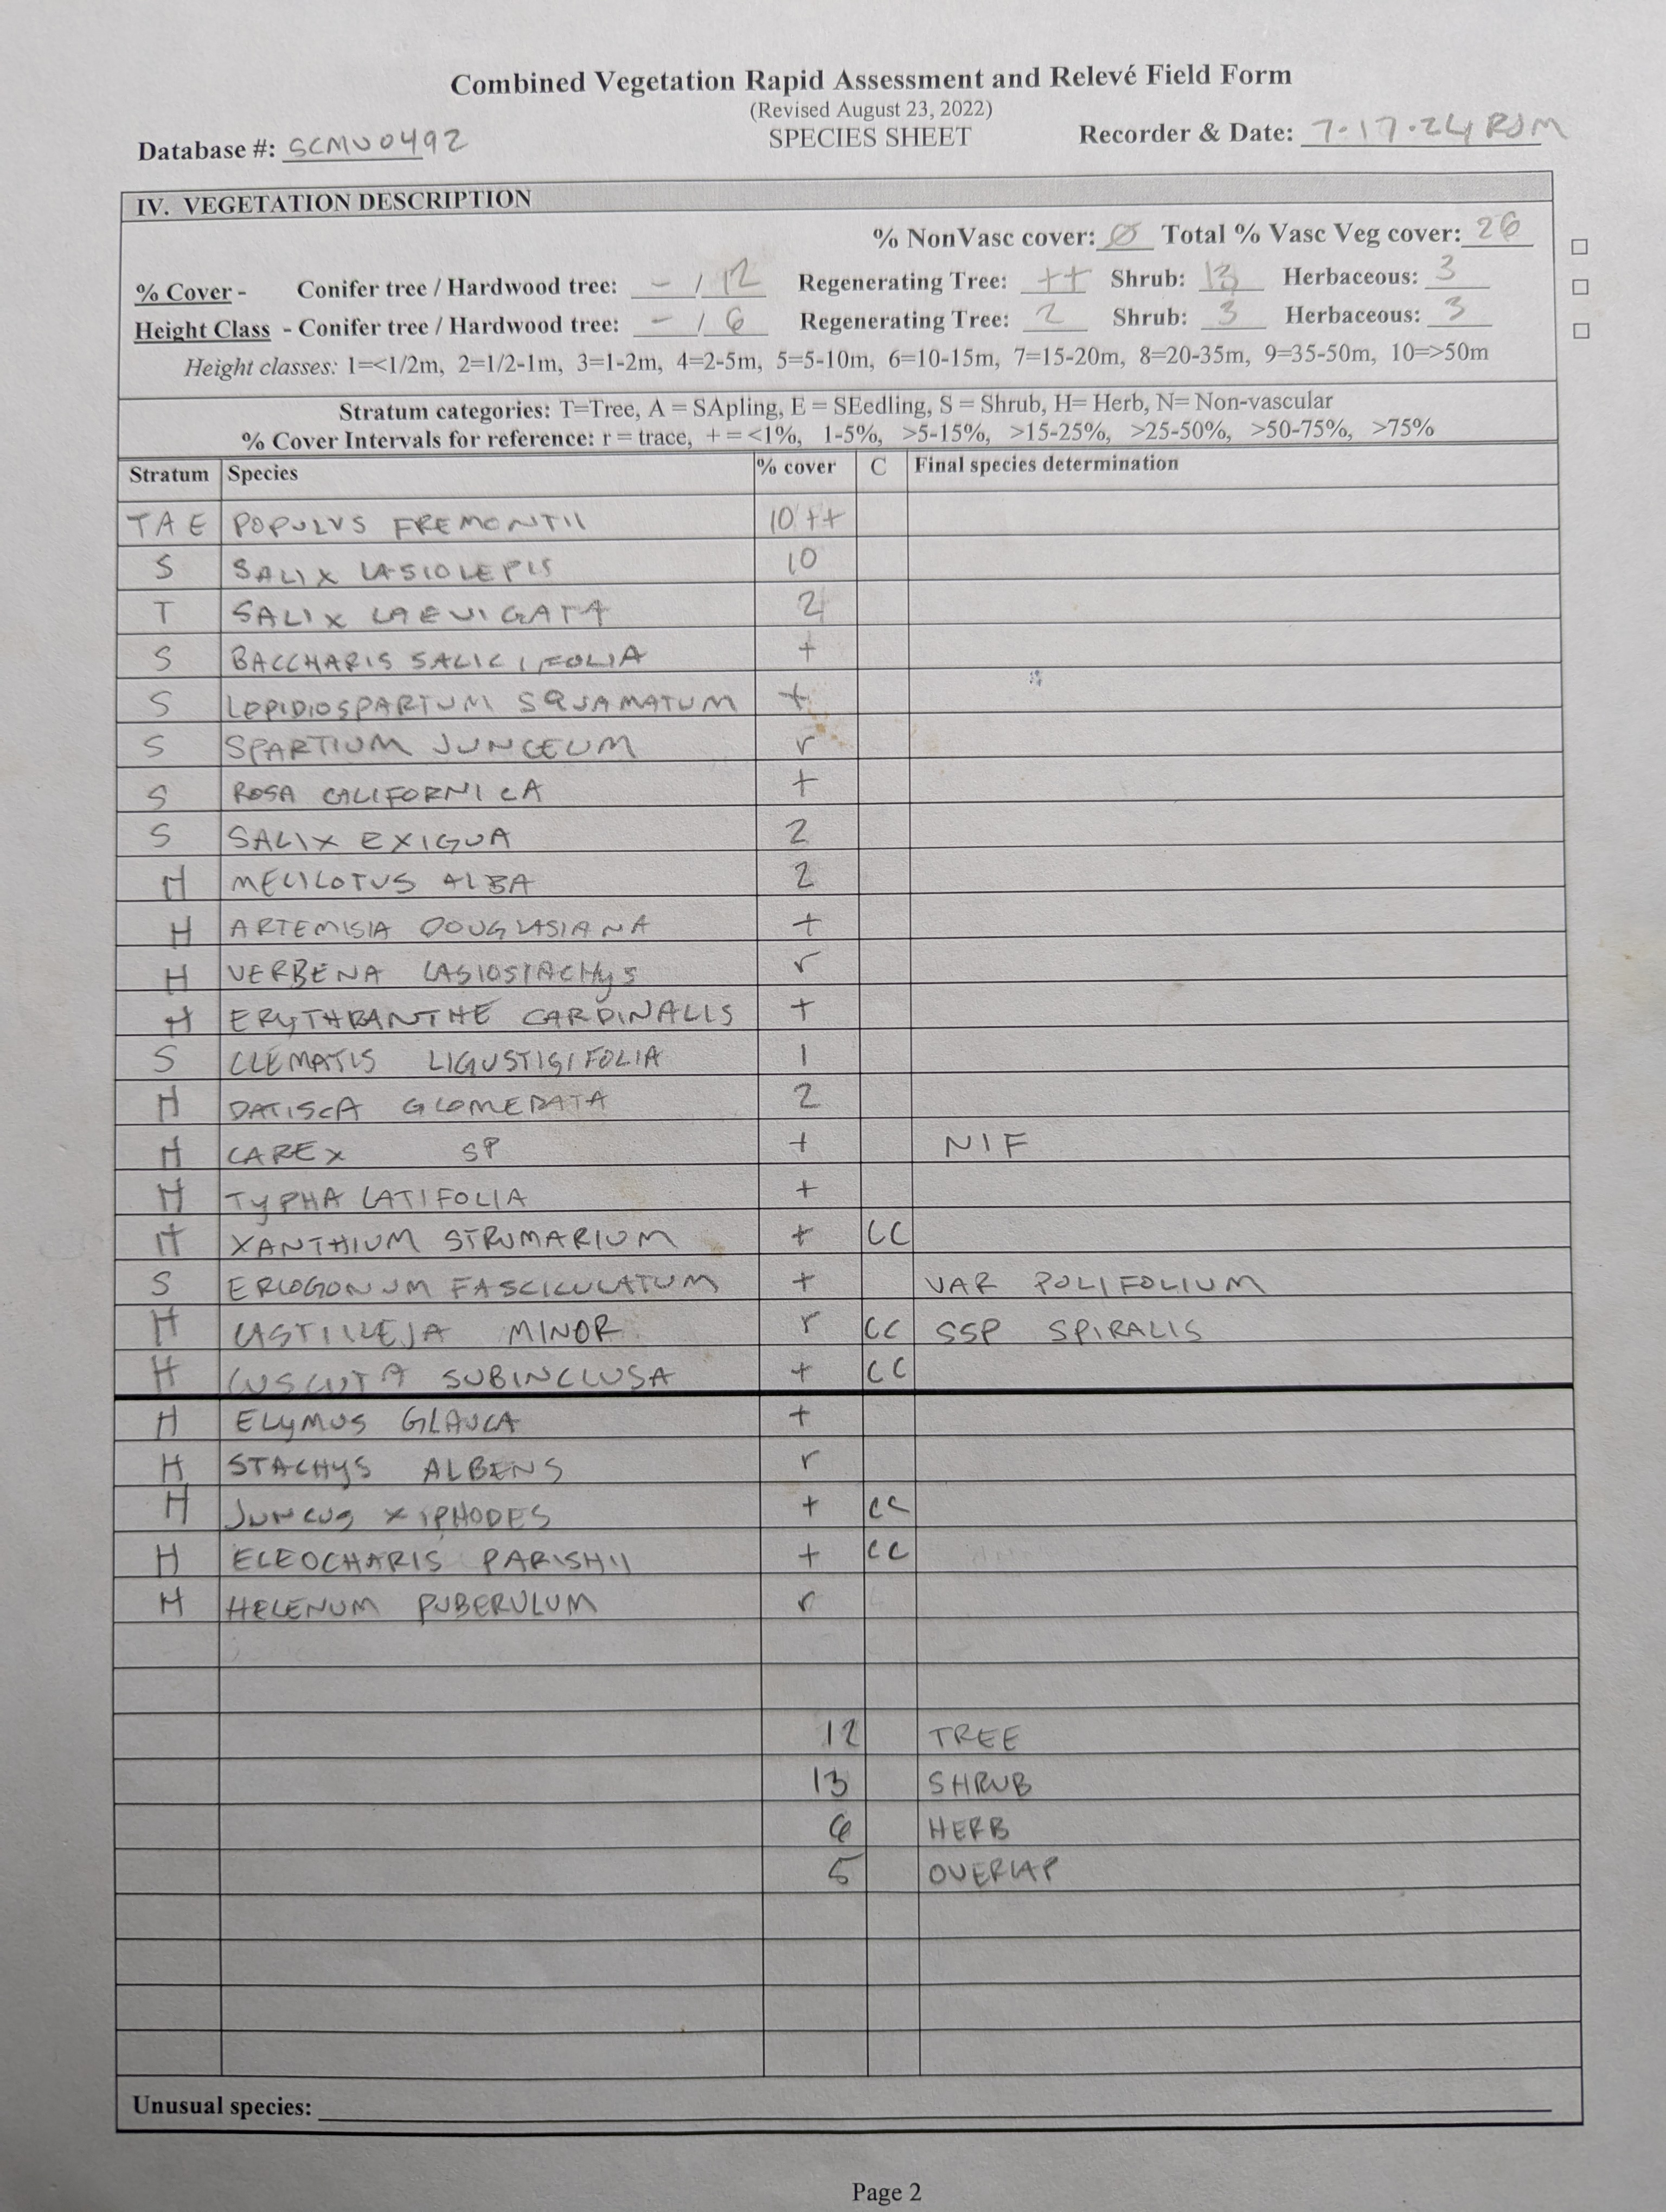 Combined Vegetation Rapid Assessment and Relevé Field Form
(Revised August 23, 2022)
Database #: SCMU0492 SPECIES SHEET Recorder & Date: 7·17·24 RJM
IV. VEGETATION DESCRIPTION
% NonVasc cover: Ø Total % Vasc Veg cover: 26
% Cover - Conifer tree / Hardwood tree: - / 12 Regenerating Tree: ++ Shrub: 13 Herbaceous: 3
Height Class - Conifer tree / Hardwood tree: - / 6 Regenerating Tree: 2 Shrub: 3 Herbaceous: 3
Height classes: 1=<1/2m, 2=1/2-1m, 3=1-2m, 4=2-5m, 5=5-10m, 6=10-15m, 7=15-20m, 8=20-35m, 9=35-50m, 10=>50m
Stratum categories: T=Tree, A = SApling, E = SEedling, S = Shrub, H= Herb, N= Non-vascular
% Cover Intervals for reference: r = trace, + = <1%, 1-5%, >5-15%, >15-25%, >25-50%, >50-75%, >75%
Stratum Species % cover C Final species determination
T A E POPULUS FREMONTII 10 ++
S SALIX LASIOLEPIS 10
T SALIX LAEVIGATA 2
S BACCHARIS SALICIFOLIA +
S LEPIDIOSPARTUM SQUAMATUM +
S SPARTIUM JUNCEUM r
S ROSA CALIFORNICA +
S SALIX EXIGUA 2
H MELILOTUS ALBA 2
H ARTEMISIA DOUGLASIANA +
H VERBENA LASIOSTACHYS r
H ERYTHRANTHE CARDINALIS +
S CLEMATIS LIGUSTISIFOLIA 1
H DATISCA GLOMERATA 2
H CAREX SP + NIF
H TYPHA LATIFOLIA +
H XANTHIUM STRUMARIUM + CC
S ERIOGONUM FASCICULATUM + VAR POLIFOLIUM
H CASTILLEJA MINOR r CC SSP SPIRALIS
H CUSCUTA SUBINCLUSA + CC
H ELYMUS GLAUCA +
H STACHYS ALBENS r
H JUNCUS XIPHODES + CC
H ELEOCHARIS PARISHII + CC
H HELENUM PUBERULUM r
12 TREE
13 SHRUB
6 HERB
5 OVERLAP
Unusual species:
Page 2